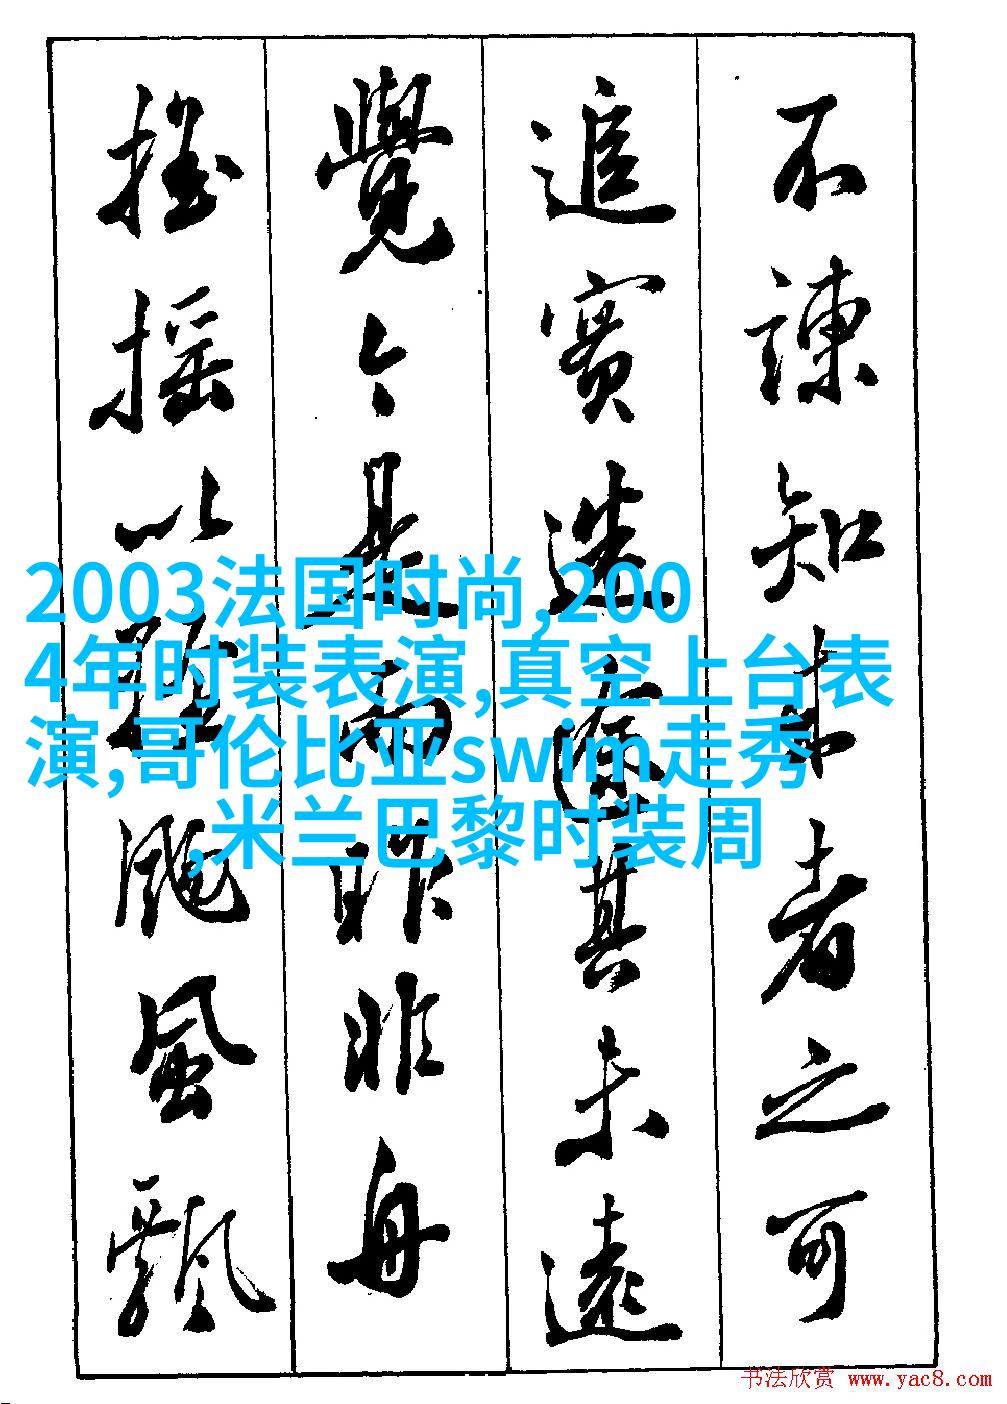 不諫知来者之可
追實迷途其未遠
覺今是而昨非舟
摇摇以輕颺風飄
2003法国时尚,200
4年时装表演,真空上台表
演,哥伦比亚swim走秀
,米兰巴黎时装周
书法欣赏 www.yac8.com